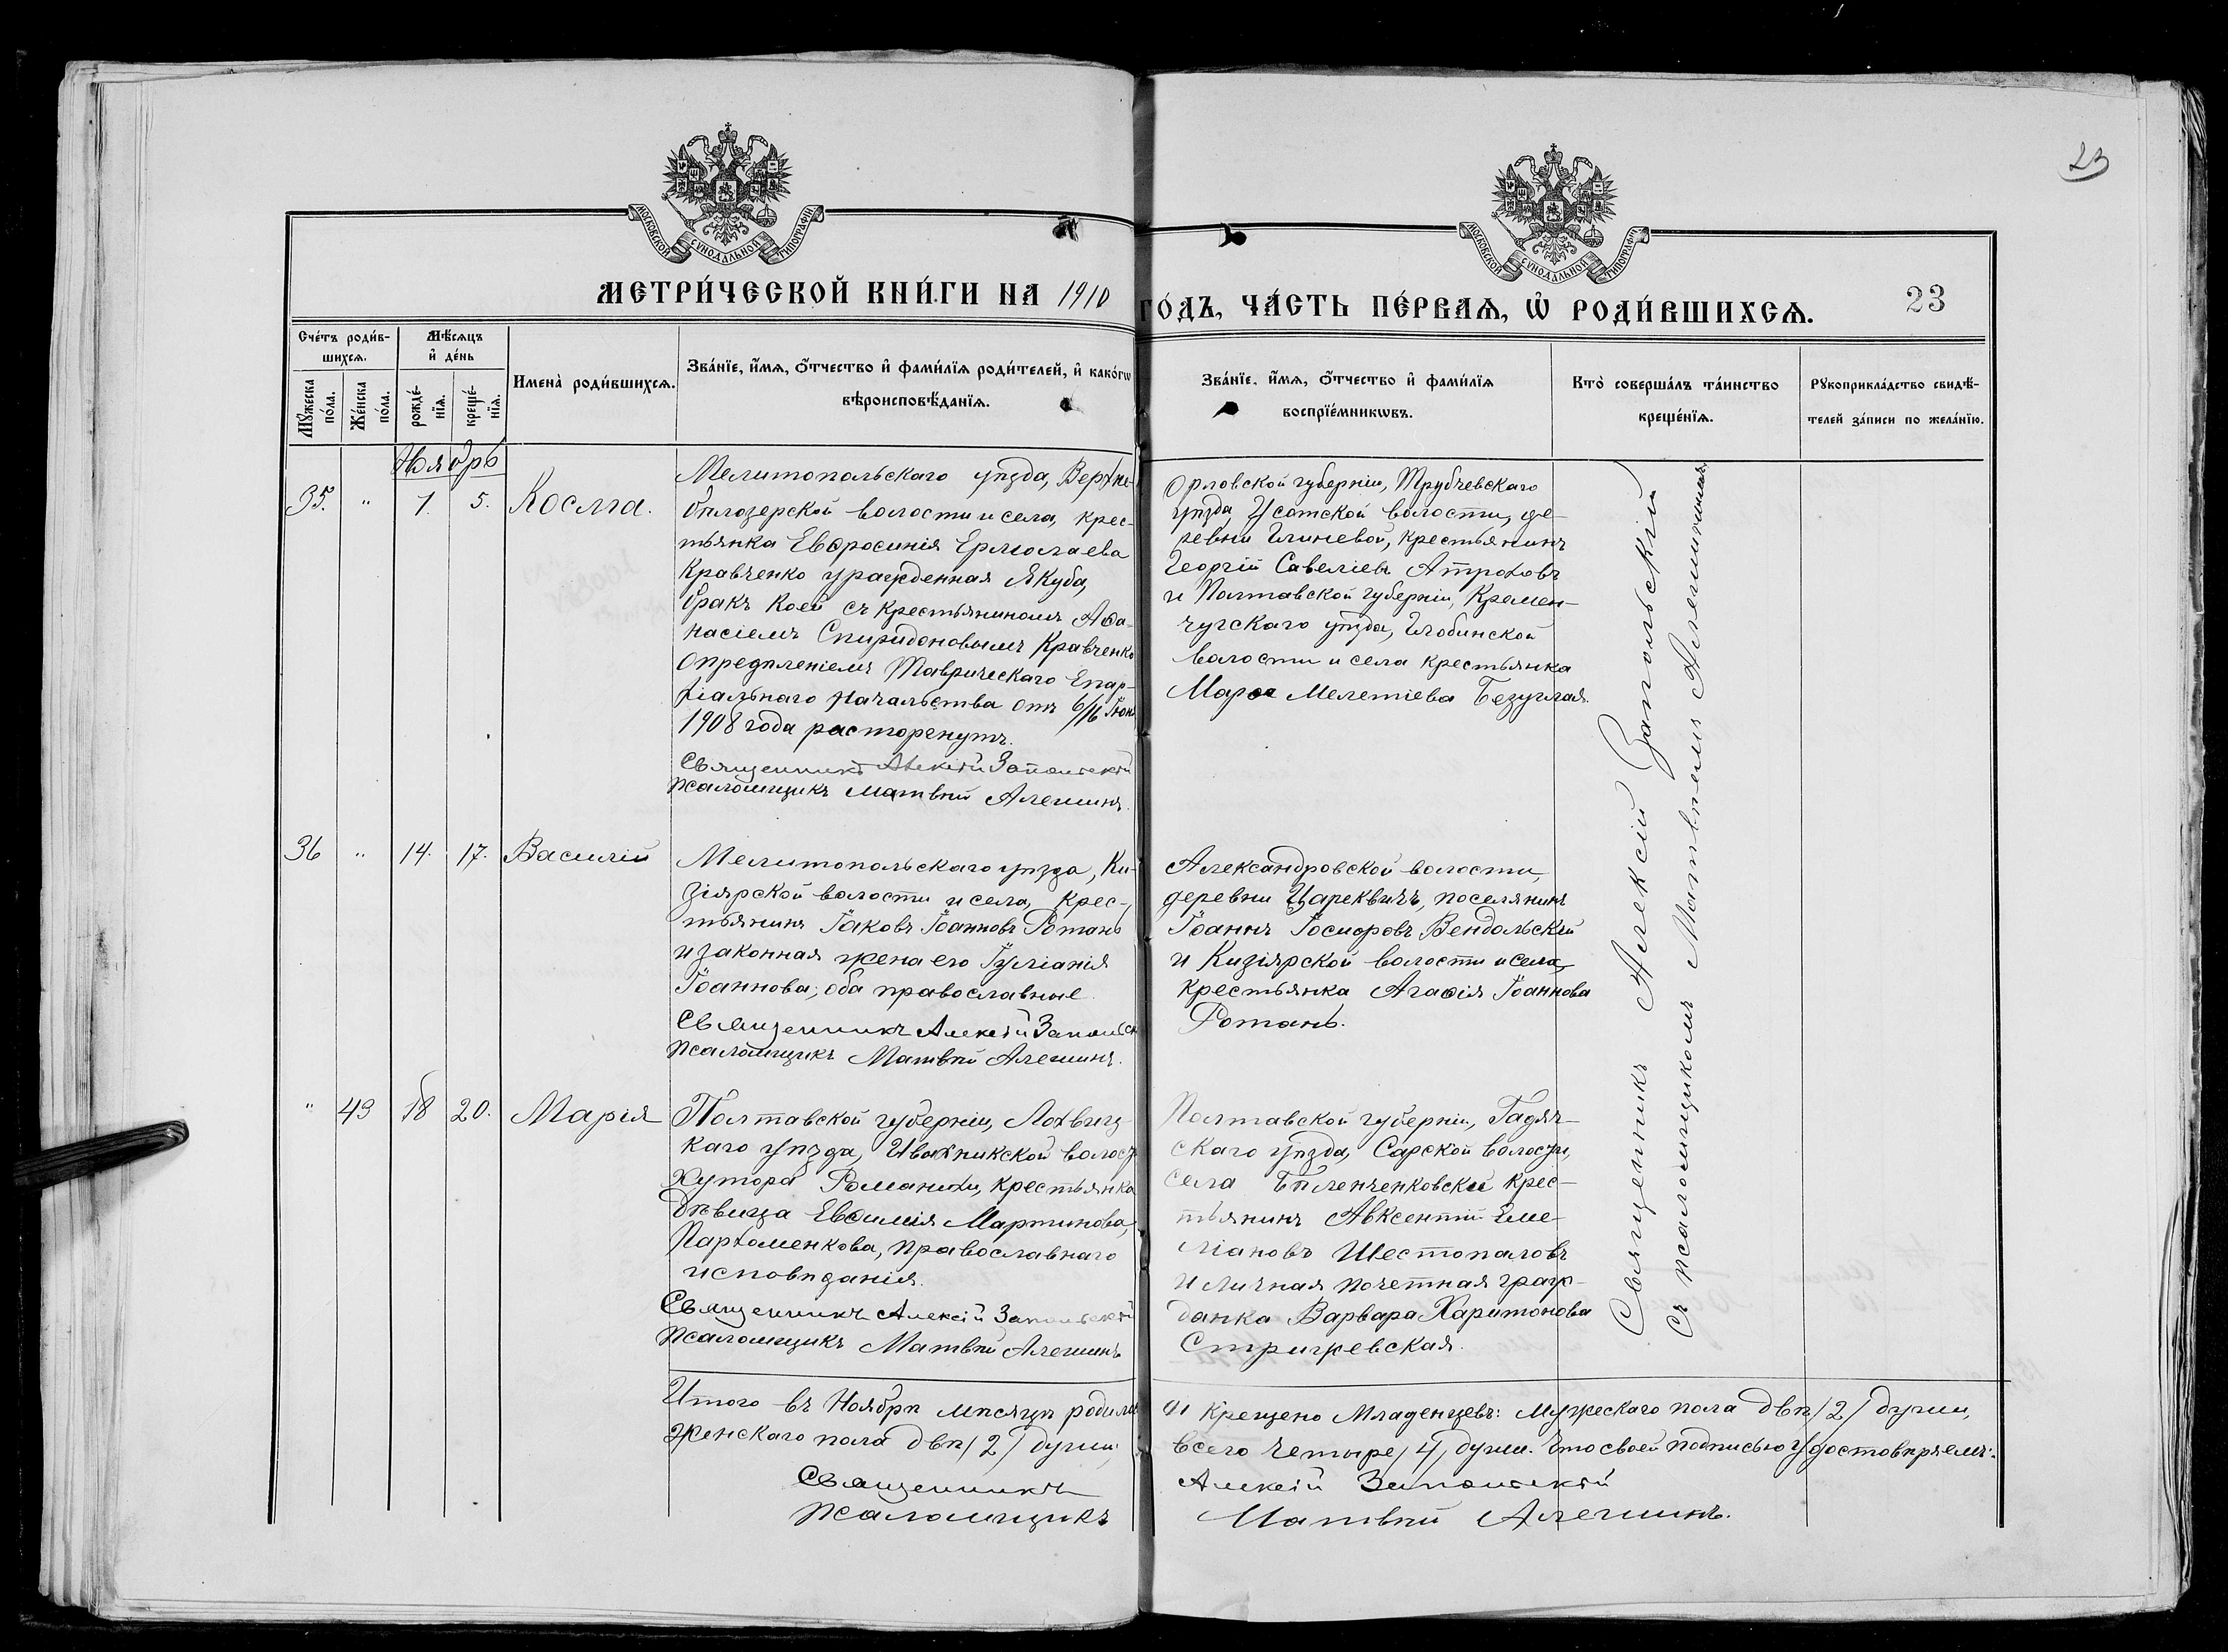 23
МОСКОВСКОЙ СѴНОДАЛЬНОЙ ТИПОГРАФІИ
МОСКОВСКОЙ СѴНОДАЛЬНОЙ ТИПОГРАФІИ
МЕТРИ́ЧЕСКОЙ КНИ́ГИ НА 1910
ГО́ДЪ, ЧА́СТЬ ПЕ́РВАѦ, Ѡ҆ РОДИ́ВШИХСѦ.
23
Сче́тъ роди́в-
шихсѧ.
Мѣ́сѧцъ
и҆ де́нь
Мꙋ́жеска по́ла.
Же́нска по́ла.
рожде́-нїѧ.
креще́-нїѧ.
Имена̀ роди́вшихсѧ.
Зва́нїе, и҆́мѧ, ѻ҆́тчество и҆ фами́лїѧ роди́телей, и҆ како́гѡ
вѣроисповѣ́данїѧ.
Зва́нїе, и҆́мѧ, ѻ҆́тчество и҆ фами́лїѧ
воспрїе́мникѡвъ.
Кто̀ соверша́лъ та́инство
креще́нїѧ.
Рꙋкоприкла́дство свидѣ́-
телей за́писи по жела́нїю.
Ноябрь
35. " 1. 5. Косма.
Мелитопольскаго уѣзда, Верхне-
бѣлозерской волости и села, крес-
тьянка Евѳросинія Ермолаева
Кравченко урожденная Якуба,
бракъ коей съ крестьяниномъ Аѳа-
насіемъ Спиридоновымъ Кравченко
опредѣленіемъ Таврическаго Епар-
хіальнаго начальства отъ 6/16 Іюня
1908 года расторгнутъ.
Священникъ Алексій Запольскій
Псаломщикъ Матвѣй Алешинъ.
Орловской губерніи, Трубчевскаго
уѣзда Усотской волости, де-
ревни Глиневой, крестьянинъ
Георгій Савеліевъ Атроховъ
и Полтавской губерніи, Кремен-
чугскаго уѣзда, Глобинской
волости и села крестьянка
Марѳа Мелетіева Безуглая.
36 " 14. 17. Василій
Мелитопольскаго уѣзда, Ки-
зіярской волости и села, крес-
тьянинъ Іаковъ Іоанновъ Ротань
и законная жена его Іуліанія
Іоаннова; оба православные.
Священникъ Алексій Запольск
Псаломщикъ Матвѣй Алешинъ.
Александровской волости,
деревни Цареквичъ, поселянинъ
Іоаннъ Іосифовъ Вендольскій
и Кизіярской волости и села,
крестьянка Агаѳія Іоаннова
Ротань.
" 49 18 20. Марія
Полтавской губерніи, Лохвиц-
каго уѣзда, Ивахникской волост
Хутора Романихи, крестьянка
дѣвица Евѳимія Мартинова,
Пархоменкова, православнаго
исповѣданія.
Священникъ Алексій Запольскій
Псаломщикъ Матвѣй Алешинъ
Полтавской губерніи, Гадяч-
скаго уѣзда, Сарской волости,
села Бѣленченковски крес-
тьянинъ Авксентій Еме-
ліановъ Шестопаловъ
и личная почетная граж-
данка Варвара Харитонова
Стрижевская.
Священникъ Алексій Запольскій
Съ псаломщикомъ Матвѣемъ Алешинымъ
Итого въ Ноябрѣ мѣсяцѣ родилось
и крещено младенцевъ: мужескаго пола двѣ /2/ души,
женскаго пола двѣ /2/ души;
всего четыре /4/ души. Что своей подписью удостовѣряемъ:
Священникъ
Алексій Запольскій
Псаломщикъ
Матвѣй Алешинъ.